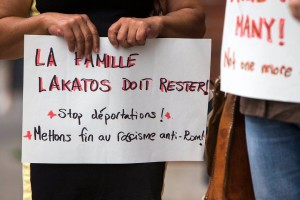 LA FAMILLE
LAKATOS DOIT RESTER!
Stop déportations!
Mettons fin au racisme anti-Rom!
MANY!
Not one more